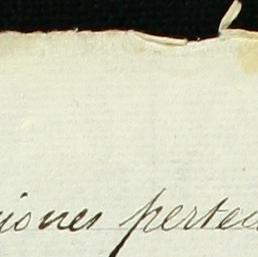 iones pertec